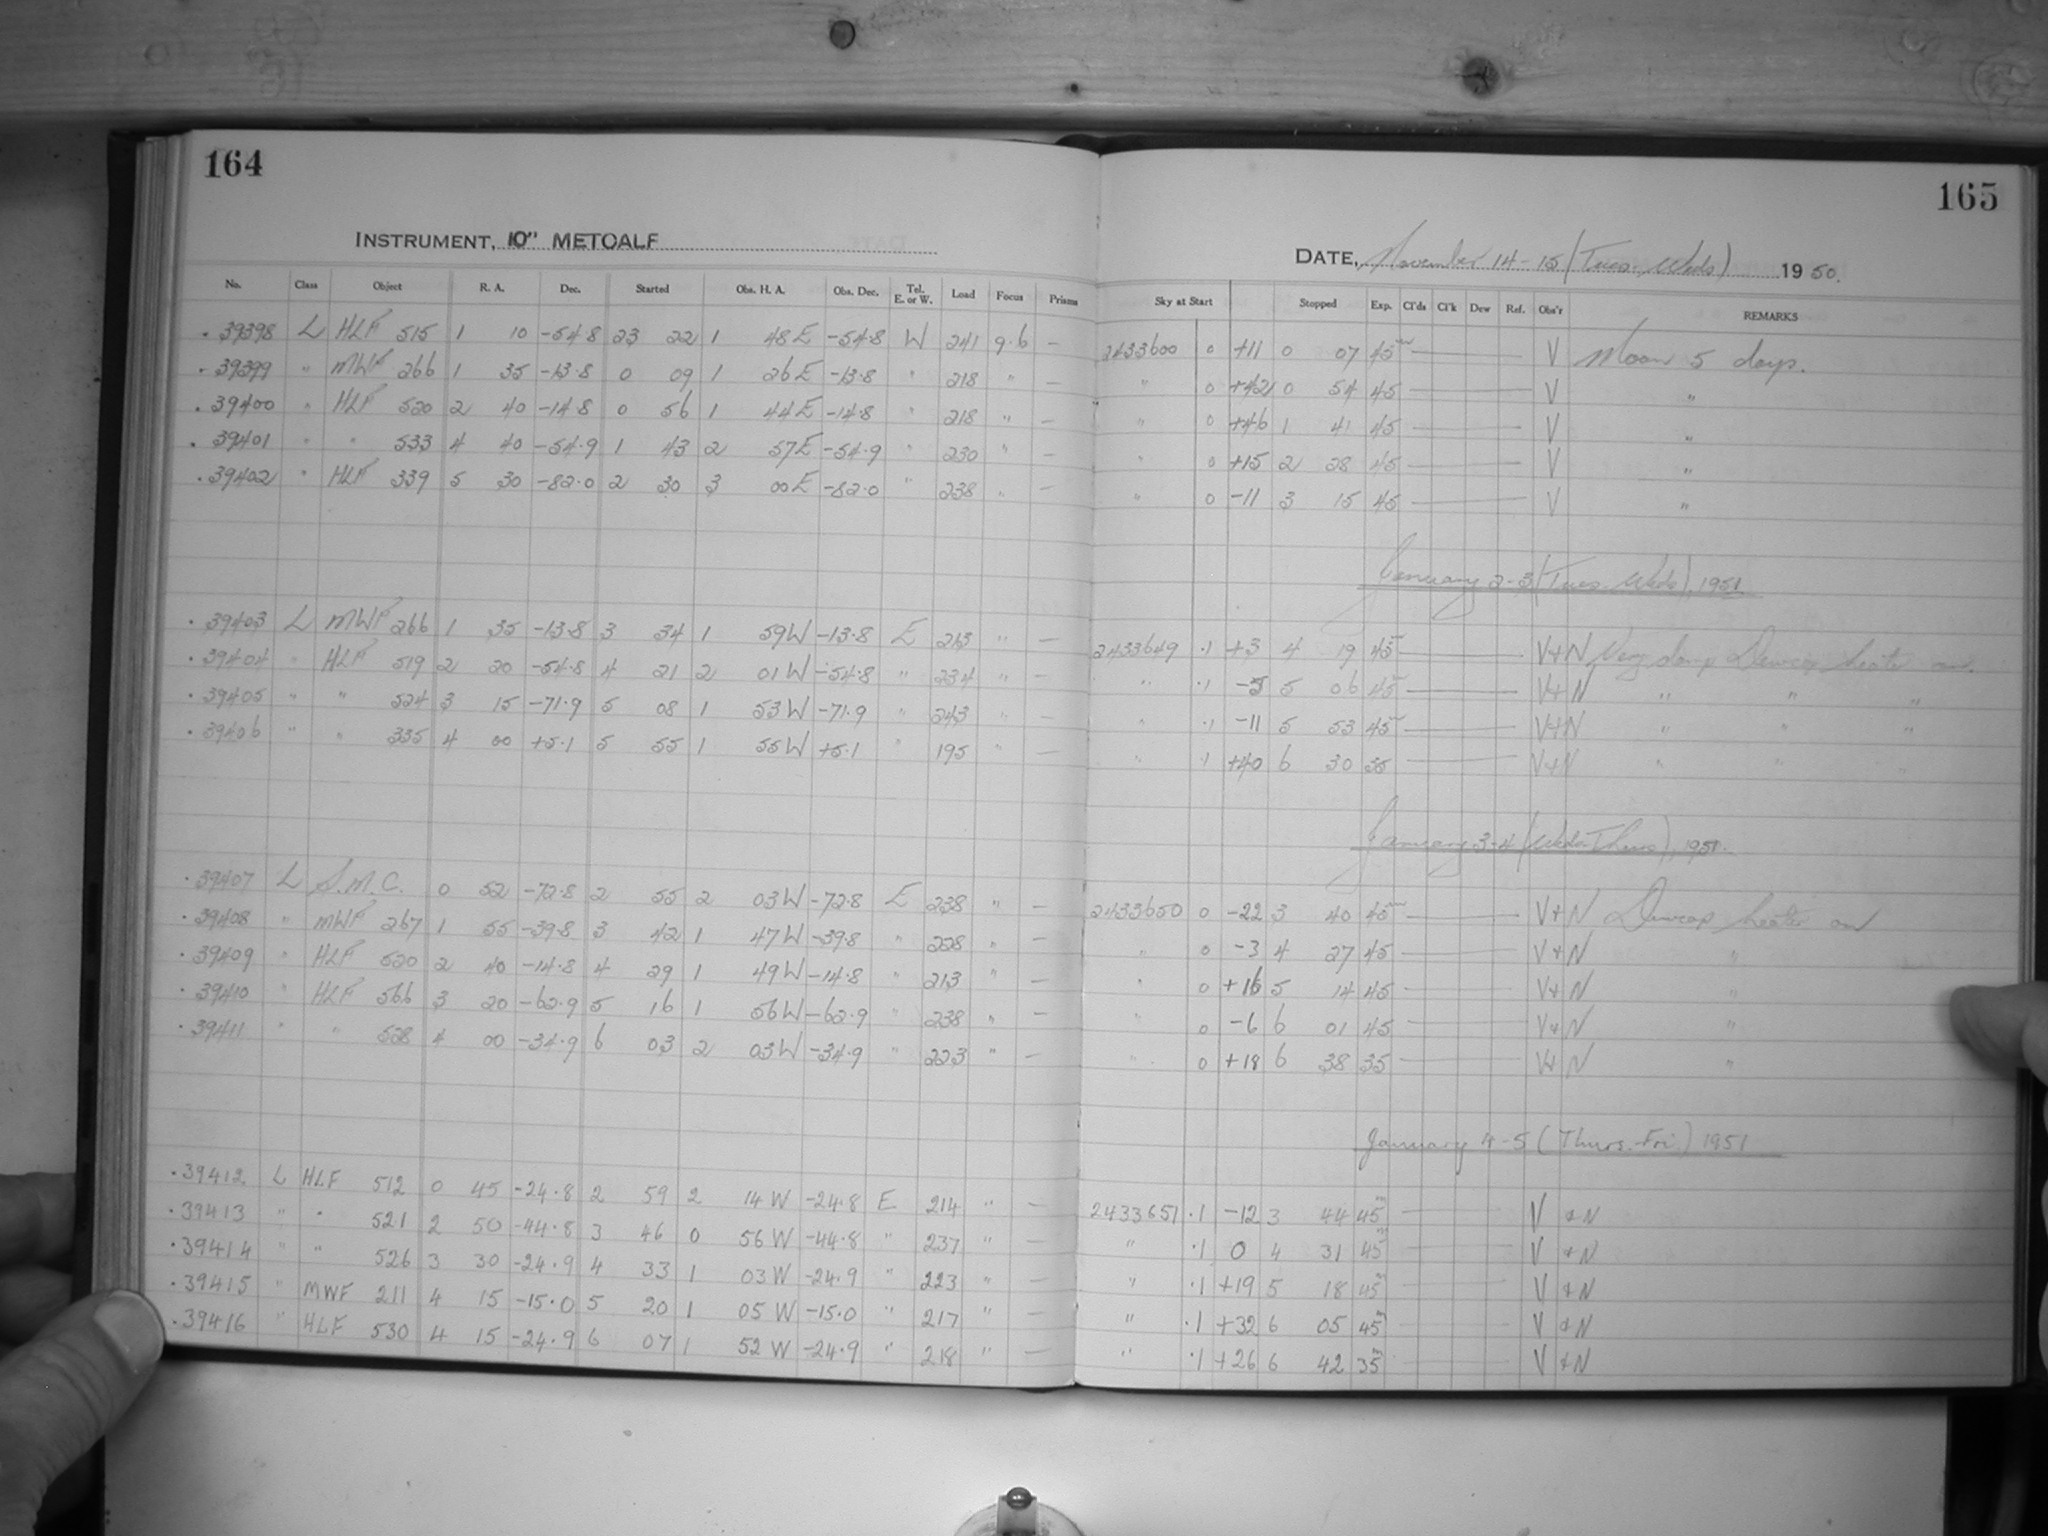 164
165
INSTRUMENT, 10" METCALF
DATE, November 14-15 (Tues.-Weds) 1950.
No. Class Object R. A. Dec. Started Obs. H. A. Obs. Dec. Tel. E. or W. Load Focus Prisms Sky at Start Stopped Exp. Cl'ds Cl'k Dew Ref. Obs'r REMARKS
. 39398 L HLF 515 1 10 -54.8 23 22 1 48 E -54.8 W 241 9.6 — 2433600 0 +11 0 07 45 V Moon 5 days.
. 39399 " MWF 266 1 35 -13.8 0 09 1 26 E -13.8 " 218 " — " 0 +42 0 54 45 V "
. 39400 " HLF 520 2 40 -14.8 0 56 1 44 E -14.8 " 218 " — " 0 +46 1 41 45 V "
. 39401 " " 533 4 40 -54.9 1 43 2 57 E -54.9 " 230 " — " 0 +15 2 28 45 V "
. 39402 " HLF 339 5 30 -82.0 2 30 3 00 E -82.0 " 238 " — " 0 -11 3 15 45 V "
January 2-3 (Tues.-Weds), 1951.
. 39403 L MWF 266 1 35 -13.8 3 34 1 59 W -13.8 E 213 " — 2433649 .1 +3 4 19 45 V+N Very damp Dewcap heater on.
. 39404 " HLF 519 2 20 -54.8 4 21 2 01 W -54.8 " 234 " — " .1 -5 5 06 45 V+N " " "
. 39405 " " 524 3 15 -71.9 5 08 1 53 W -71.9 " 243 " — " .1 -11 5 53 45 V+N " " "
. 39406 " " 335 4 00 +5.1 5 55 1 55 W +5.1 " 195 " — " .1 +40 6 30 35 V+N " " "
January 3-4 (Weds-Thurs), 1951.
. 39407 L S.M.C. 0 52 -72.8 2 55 2 03 W -72.8 E 238 " — 2433650 0 -22 3 40 45 V+N Dewcap heater on
. 39408 " MWF 267 1 55 -39.8 3 42 1 47 W -39.8 " 228 " — " 0 -3 4 27 45 V+N "
. 39409 " HLF 520 2 40 -14.8 4 29 1 49 W -14.8 " 213 " — " 0 +16 5 14 45 V+N "
. 39410 " HLF 566 3 20 -62.9 5 16 1 56 W -62.9 " 238 " — " 0 -6 6 01 45 V+N "
. 39411 " " 528 4 00 -34.9 6 03 2 03 W -34.9 " 223 " — " 0 +18 6 38 35 V+N "
January 4-5 (Thurs.-Fri) 1951
. 39412 L HLF 512 0 45 -24.8 2 59 2 14 W -24.8 E 214 " — 2433651 .1 -12 3 44 45 V +N
. 39413 " " 521 2 50 -44.8 3 46 0 56 W -44.8 " 237 " — " .1 0 4 31 45 V +N
. 39414 " " 526 3 30 -24.9 4 33 1 03 W -24.9 " 223 " — " .1 +19 5 18 45 V +N
. 39415 " MWF 211 4 15 -15.0 5 20 1 05 W -15.0 " 217 " — " .1 +32 6 05 45 V +N
. 39416 " HLF 530 4 15 -24.9 6 07 1 52 W -24.9 " 218 " — " .1 +26 6 42 35 V +N